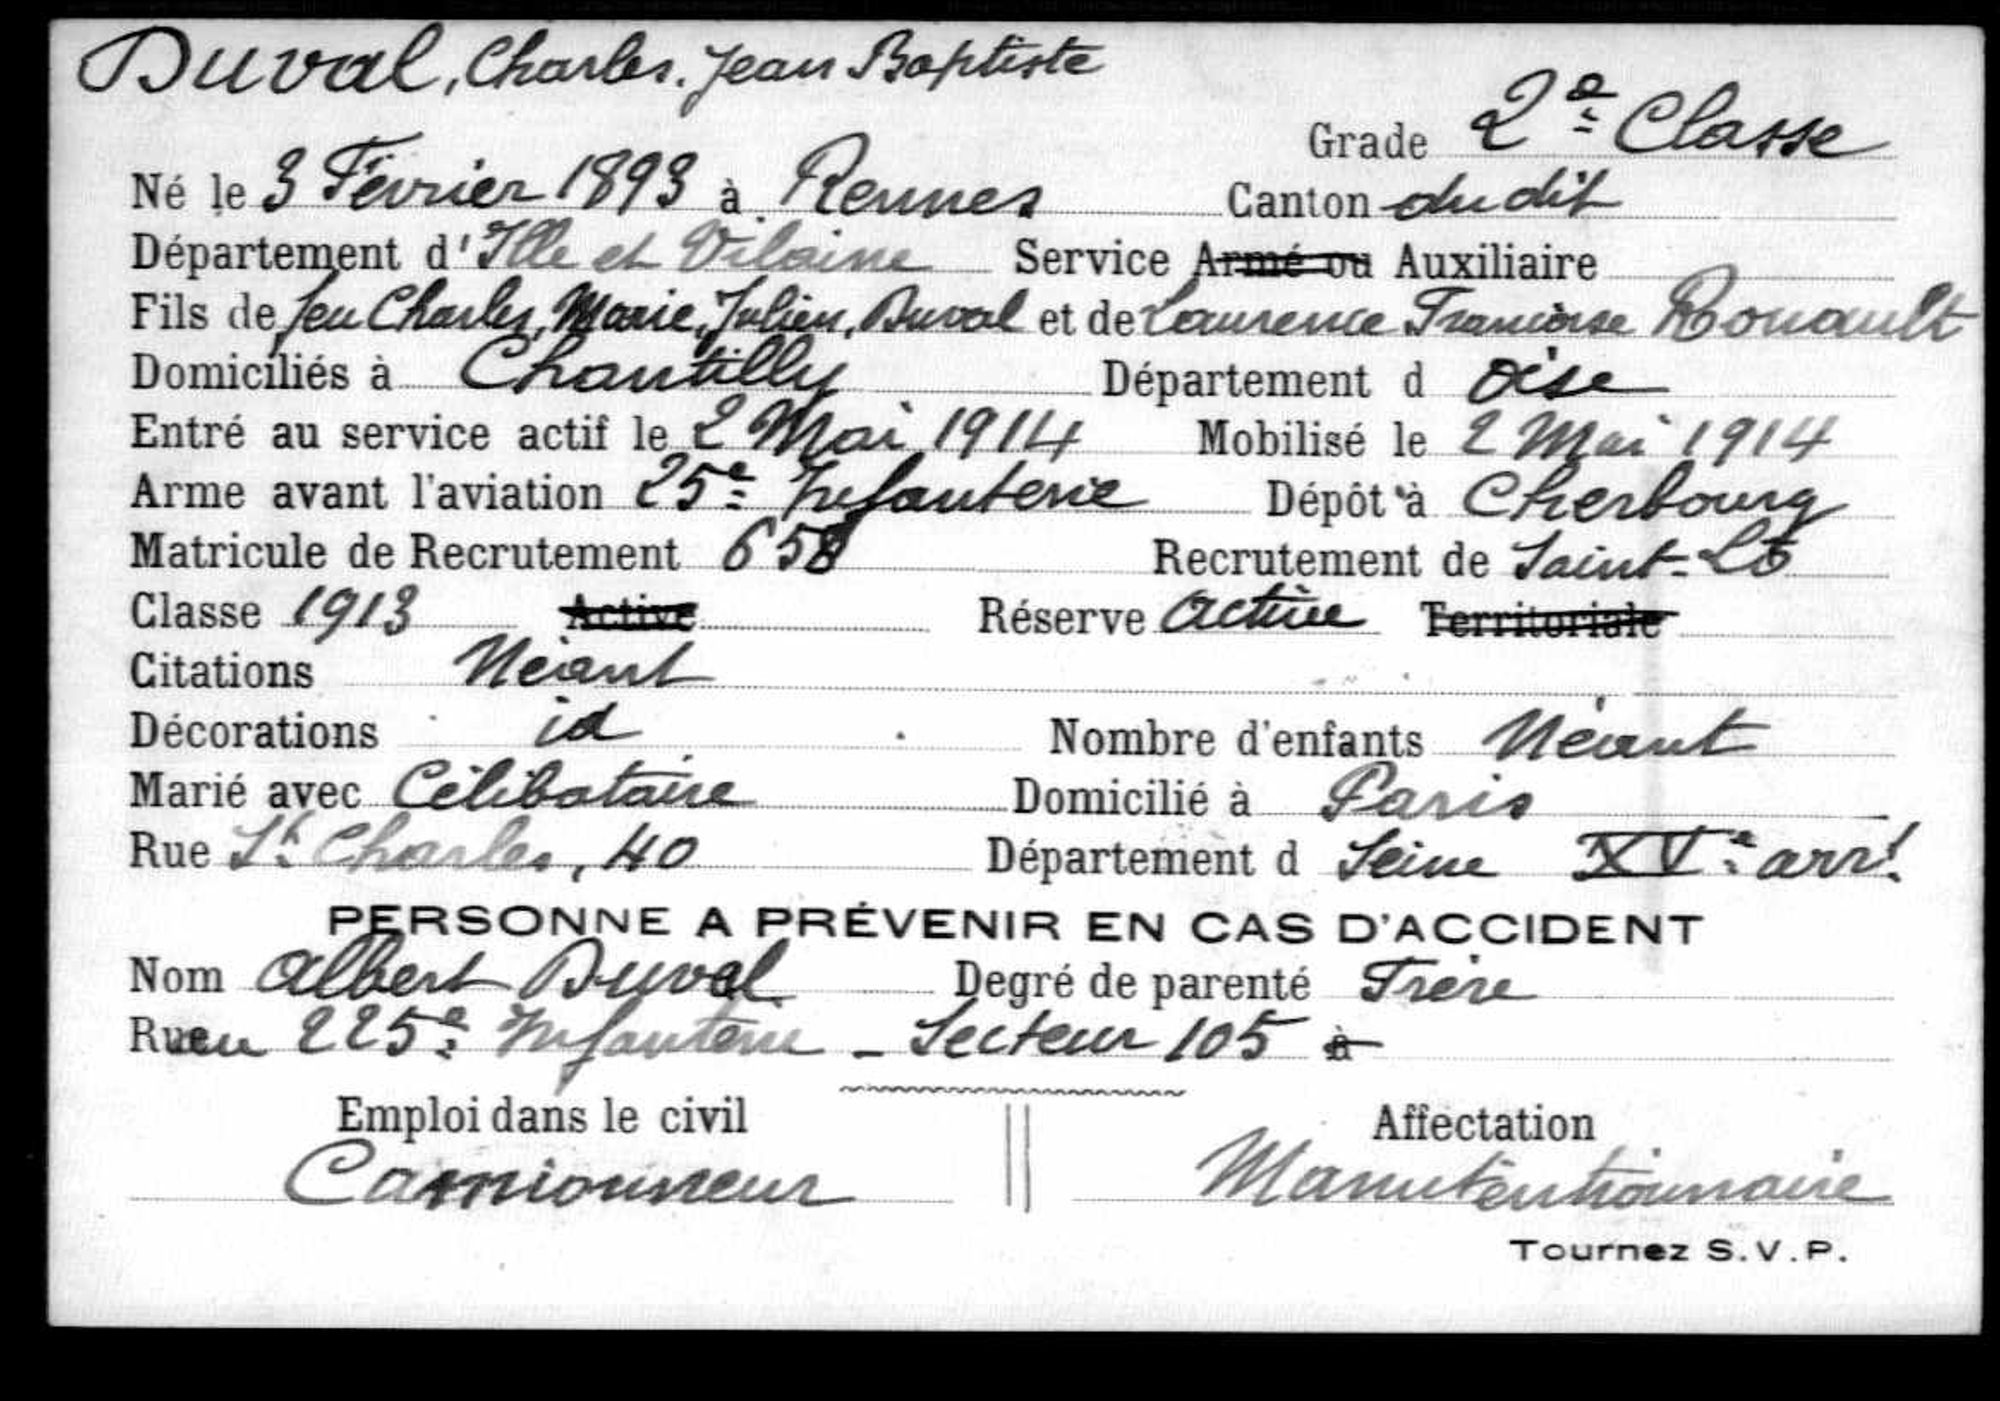 Duval, Charles. Jean Baptiste
Grade 2e Classe
Né le 3 Février 1893 à Rennes Canton du dit
Département d'Ille et Vilaine Service Armé ou Auxiliaire
Fils de feu Charles, Marie, Julien, Duval et de Laurence Françoise Rouault
Domiciliés à Chantilly Département d Oise
Entré au service actif le 2 Mai 1914 Mobilisé le 2 Mai 1914
Arme avant l'aviation 25e Infanterie Dépôt à Cherbourg
Matricule de Recrutement 658 Recrutement de Saint-Lô
Classe 1913 Active Réserve active Territoriale
Citations Néant
Décorations id Nombre d'enfants Néant
Marié avec Célibataire Domicilié à Paris
Rue St Charles, 40 Département d Seine XVe arrt
PERSONNE A PRÉVENIR EN CAS D'ACCIDENT
Nom Albert Duval Degré de parenté Frère
Rue au 225e Infanterie - Secteur 105 à
Emploi dans le civil Affectation
Camionneur Manutentionnaire
Tournez S.V.P.